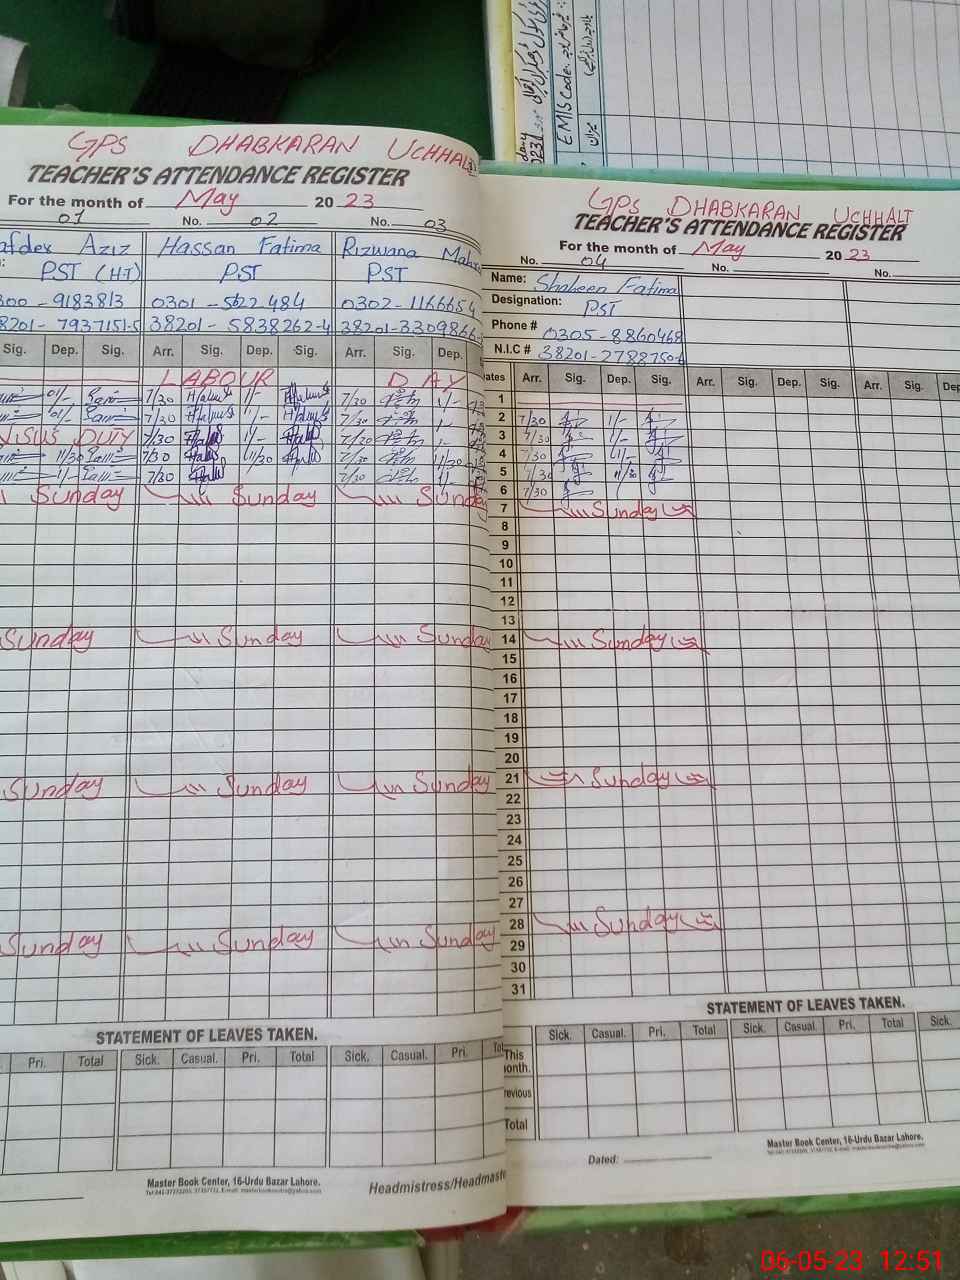 EMIS Code.
GPS DHABKARAN UCHHALI
TEACHER'S ATTENDANCE REGISTER
For the month of May 20 23
01 No. 02 No. 03
Aziz Hassan Fatima Rizwana
PST (HT) PST PST
300 - 9183813 0301 - 5622484 0302 - 1166654
38201 - 7937151-5 38201 - 5838262-4 38201-3309866-
Sig. Dep. Sig. Arr. Sig. Dep. Sig. Arr. Sig. Dep.
LABOUR DAY
01/- 7/30 1/- 7/30 1/-
01/- 7/30 1/- 7/30 1/-
DUTY 7/30 1/- 7/20 1/-
11/30 7/30 11/30 7/30 11/30
1/- 7/30 7/30 1/-
Sunday Sunday Sunday
Sunday Sunday Sunday
Sunday Sunday Sunday
Sunday Sunday Sunday
STATEMENT OF LEAVES TAKEN.
Pri. Total Sick. Casual. Pri. Total Sick. Casual. Pri.
Master Book Center, 16-Urdu Bazar Lahore.
Headmistress/Headmaste
GPS DHABKARAN UCHHALI
TEACHER'S ATTENDANCE REGISTER
For the month of May 20 23
No. 04 No. No.
Name: Shaheen Fatima
Designation: PST
Phone # 0305-8860468
N.I.C # 38201-2788750-6
ates Arr. Sig. Dep. Sig. Arr. Sig. Dep. Sig. Arr. Sig. Dep
1
2 7/30 1/-
3 7/30 1/-
4 7/30 1/-
5 7/30 11/30
6 7/30
7 Sunday
8
9
10
11
12
13
14 Sunday
15
16
17
18
19
20
21 Sunday
22
23
24
25
26
27
28 Sunday
29
30
31
STATEMENT OF LEAVES TAKEN.
Sick. Casual. Pri. Total Sick. Casual. Pri. Total Sick.
This
onth.
revious
Total
Master Book Center, 16-Urdu Bazar Lahore.
Dated:
06-05-23 12:51